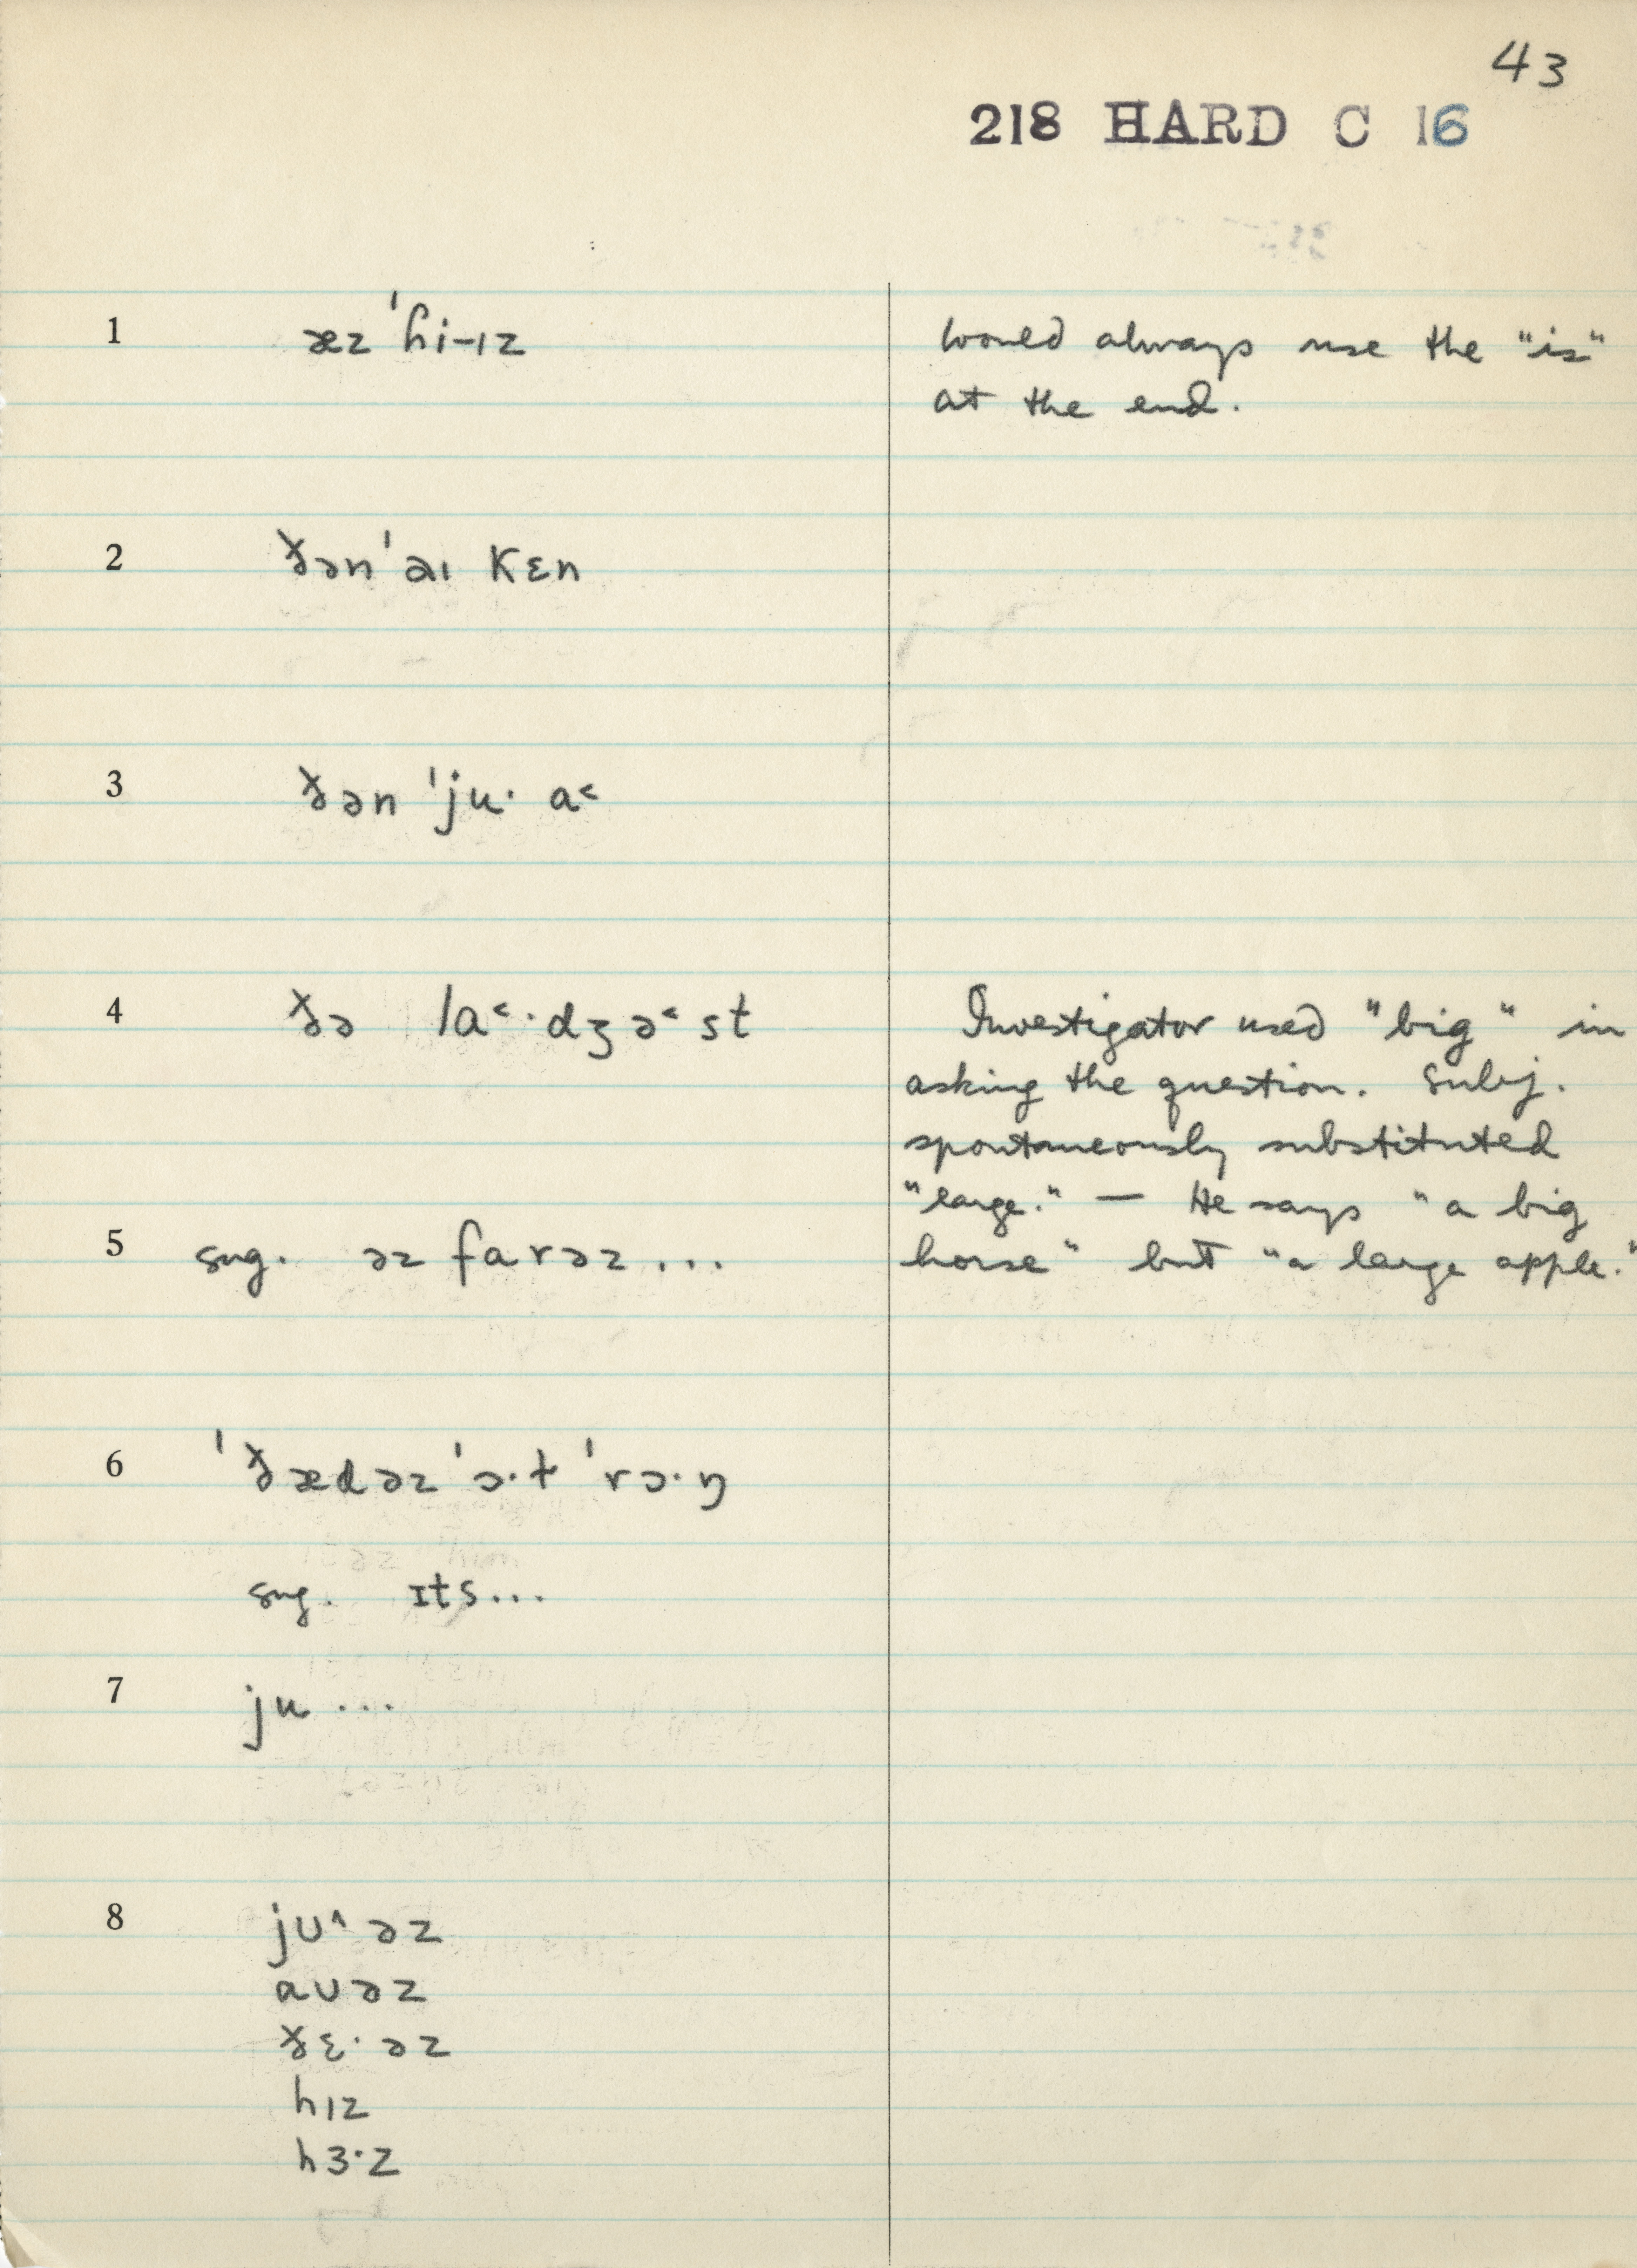 43
218 HARD C 16
1 æz ˈhi-ɪz
would always use the "is"
at the end.
2 ðən ˈaɪ kɛn
3 ðən ˈju· a˂
4 ðə la˂·dʒə˂st
Investigator used "big" in
asking the question. Subj.
spontaneously substituted
"large." — He says "a big
5 sug. əz farəz ...
horse" but "a large apple."
6 ˈðædəz ˈɔ·ɫ ˈrɔ·ŋ
sug. ɪts...
7 ju ...
8 jʊ˄əz
aʊəz
ðɛ·əz
hɪz
hɜ·z